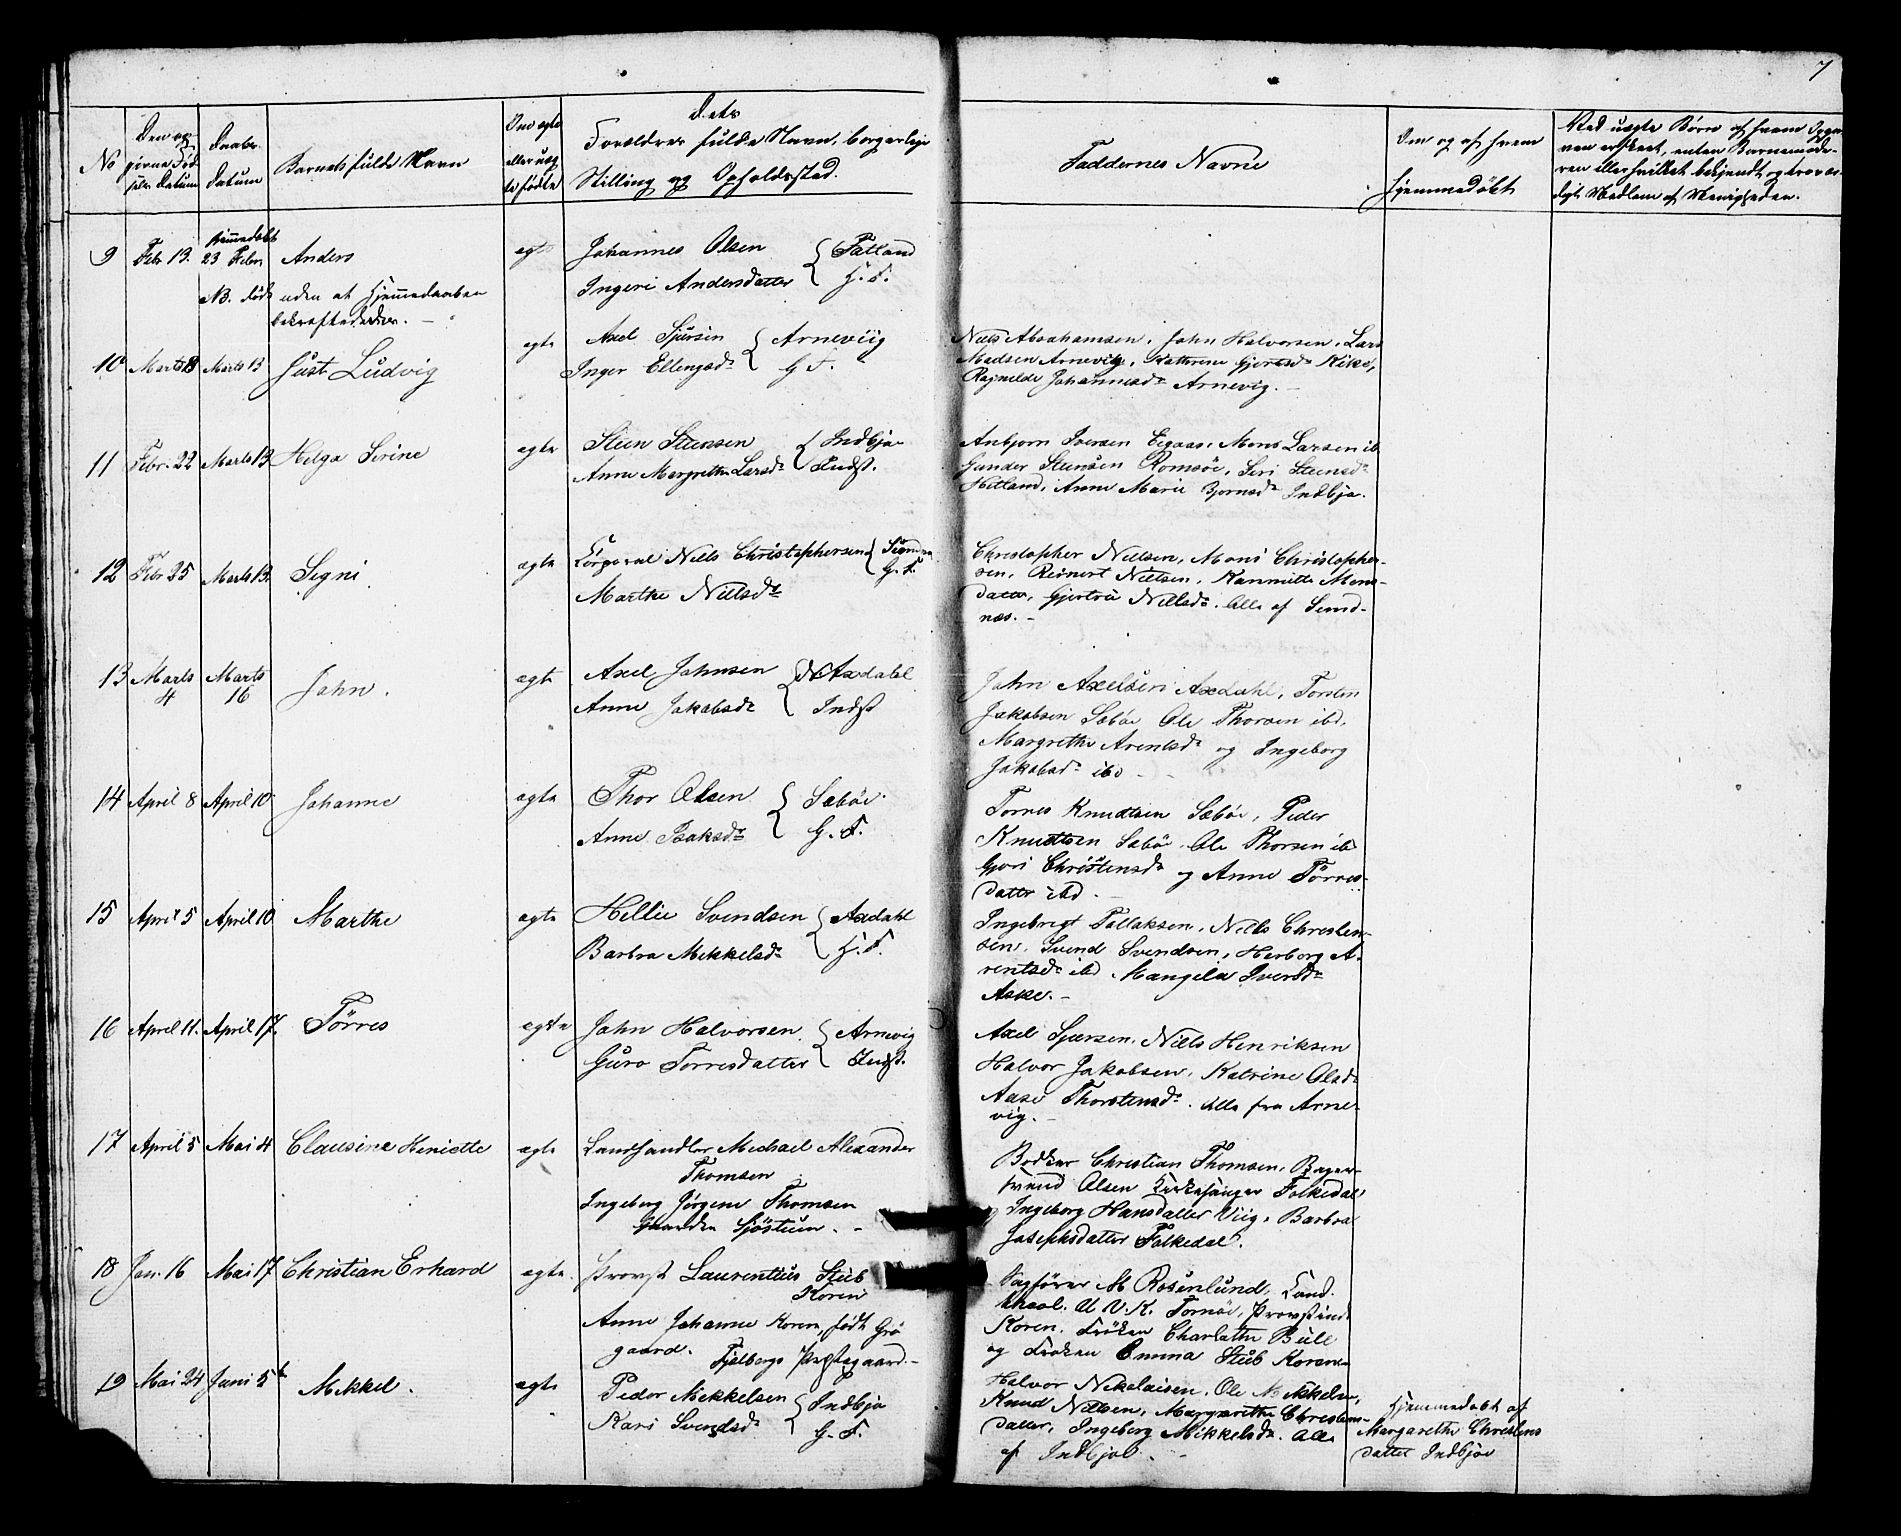 7
No
Den op-
givne Fød-
sels Datum
Daabs-
Datum
Barnets fulde Navn
Om ægte
eller uæg-
te fødte
Dets
Forældres fulde Navn, borgerlige
Stilling og Opholdssted.
Faddernes Navne
Om og af hvem
hjemmedøbt
Ved uægte Børn af hvem Opga-
ven er skeet, enten Barnemode-
ren eller hvilket bekjendt og trovær-
digt Medlem af Menigheden.
9 Febr 13. Hjemmedøbt 23 Febr. Anders ægte Johannes Olsen Fatland
Ingeri Andersdatter G. F.
NB. døde uden at Hjemmedaaben
bekræftedes.
10 Marts 8 Marts 13 Gust Ludvig ægte Axel Sjursen Arneviig
Inger Ellengsdr G F.
Niels Abrahamsen, John Halvorsen, Lars
Madsen Arnevig, Kathrine Gjertsdr Kike,
Ragnilde Johannesdr Arnevig.
11 Febr. 22 Marts 13 Helga Serine ægte Steen Steensen Indbjo
Anne Margrethe Larsdr Indst.
Anbjorn Iversen Eegaas, Mons Larsen ib
Gunder Steensen Romsöe, Siri Steensdr
Hetland, Anne Marie Bjornsdr Indbjo.
12 Febr 25 Marts 13 Segni ægte Corporal Niels Christophersen
Marthe Nielsdr G. F.
Christopher Nielsen, Mons Christopher-
sen, Reinert Nielsen, Kanutte Mons-
datter, Gjertrü Nielsdr. Alle af Sund-
næs.
13 Marts 4 Marts 16 John. ægte Axel Johnsen Axdahl
Anne Jakobsdr Indst
John Axelsen Axdahl, Torsten
Jakobsen Sæböe Ole Thorsen ibd,
Margrethe Arentsdr og Ingeborg
Jakobsdr ibd
14 April 8 April 10 Johanne ægte Thor Olsen Sæböe
Anne Isaksdr G. F.
Torres Knudtsen Sæböe, Peder
Knudtsen Sæböe Ole Thorsen ibd
Guri Christensdr og Anne Törres-
datter ibd
15 April 5 April 10 Marthe ægte Hellie Svendsen Axdahl
Barbra Mikkelsdr G. F.
Ingebrigt Tollaksen, Niels Christen-
sen, Svend Svendsen, Herborg A-
rentsdr ibd Mangela Iversdr
Aske.
16 April 11. April 17. Törres ægte John Halvorsen Arnevig
Guro Torresdatter Indst.
Axel Sjursen, Niels Henriksen
Halvor Jakobsen, Katrine Olsdr
Aase Thorstensdr. Alle fra Arne-
vig.
17 April 5 Mai 4 Clausine Henriette ægte Landhandler Michael Alexander
Thomsen
Ingeborg Jörgine Thomsen
Gaarden Sjöstuen.
Bødker Christian Thomsen, Bager-
svend Olsen Kirkesanger Folkedal
Ingeborg Hansdatter Viig, Barbra
Josephsdatter Folkedal.
18 Jan. 16 Mai 17 Christian Erhard ægte Provst Laurentius Stub
Koren
Anne Johanne Koren, født Grö
gaard. Fjelbergs Præstegaard.
Sagfører M Rosenlund, Cand.
theol. A V. K. Tornöe, Provstinde
Koren, Frøken Charlotte Bull
og Frøken Emma Stub Koren
19 Mai 24 Juni 5 Mikkel. ægte Peder Mikkelsen Indbjo
Kari Svendsdr G. F.
Halvor Nikolaisen, Ole Mikkelsen,
Knud Nielsen, Margarethe Christens-
datter, Ingeborg Mikkelsdr. Alle
af Indbjoe.
Hjemmedøbt af
Margarethe Christens
datter Indbjoe